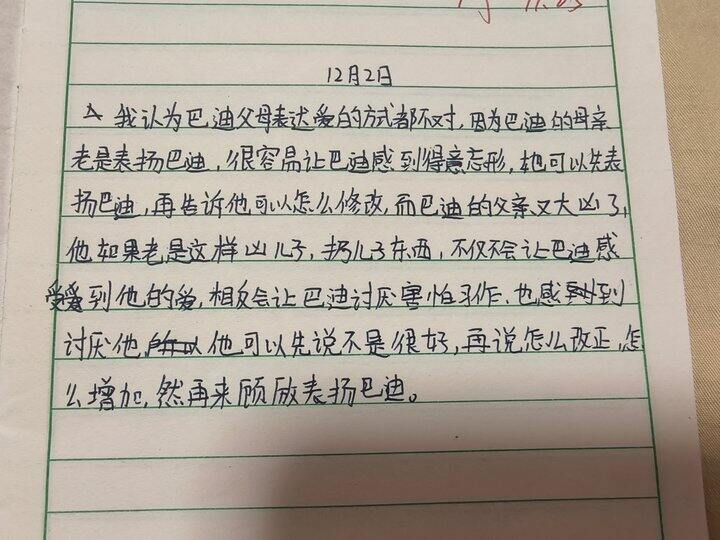 12月2日
△ 我认为巴迪父母表达爱的方式都不对，因为巴迪的母亲
老是表扬巴迪，很容易让巴迪感到得意忘形，她可以先表
扬巴迪，再告诉他可以怎么修改，而巴迪的父亲又大凶了，
他如果老是这样凶儿子，扔儿子东西，不仅不会让巴迪感
受到他的爱，相反会让巴迪讨厌害怕习作，也感到
讨厌他，他可以先说不是很好，再说怎么改正，怎
么增加，然再来顾放表扬巴迪。